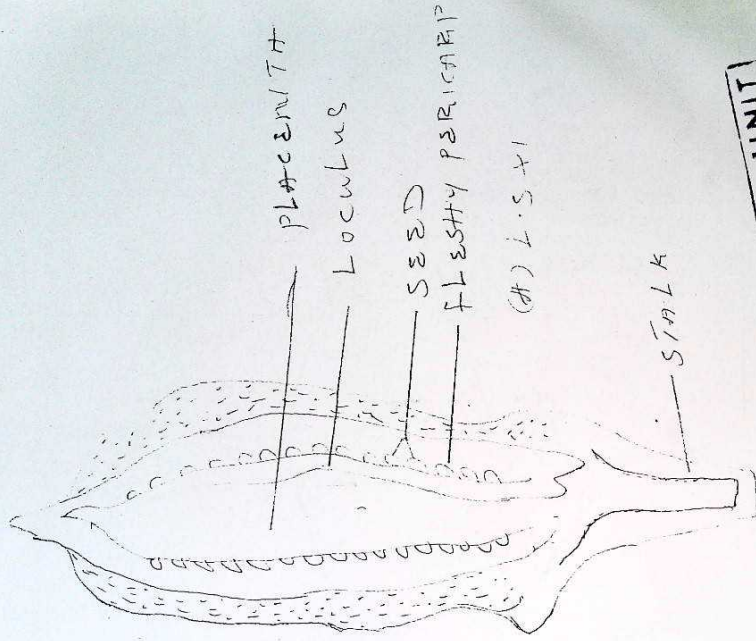 PLACENITH
LOCULUS
SEED
FLESHY PERICARP
(A) L.S X1
STALK
UNIT